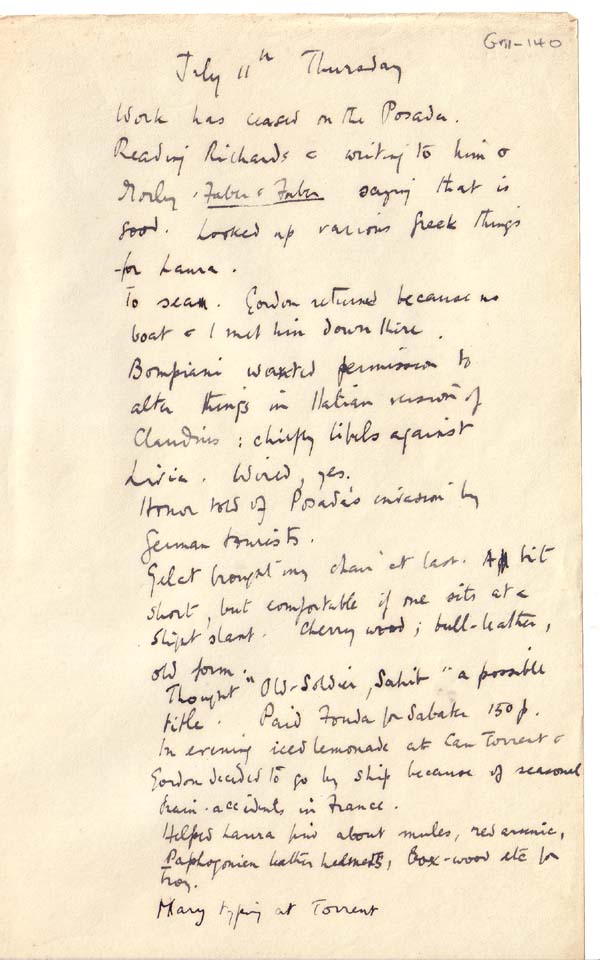 GVII-140
July 11th Thursday
Work has ceased on the Posada.
Reading Richards & writing to him &
Morley, Faber & Faber saying that is
good. Looked up various Greek things
for Laura.
To sea. Gordon returned because no
boat & I met him down there.
Bompiani wanted permission to
alter things in Italian version of
Claudius: chiefly libels against
Livia. Wired, yes.
Honor told of Posada's invasion by
German tourists.
Gelat brought my chair at last. A bit
short, but comfortable if one sits at a
slight slant. Cherry wood; bull-leather,
old form.
Thought "Old-Soldier, Sahib" a possible
title. Paid Fonda for Sabater 150 p.
In evening iced lemonade at Can Torrent &
Gordon decided to go by ship because of seasonal
train-accidents in France.
Helped Laura find about mules, red arsenic,
Paphlagonian leather helmets, Box-wood etc for
Troy.
Mary typing at Torrent